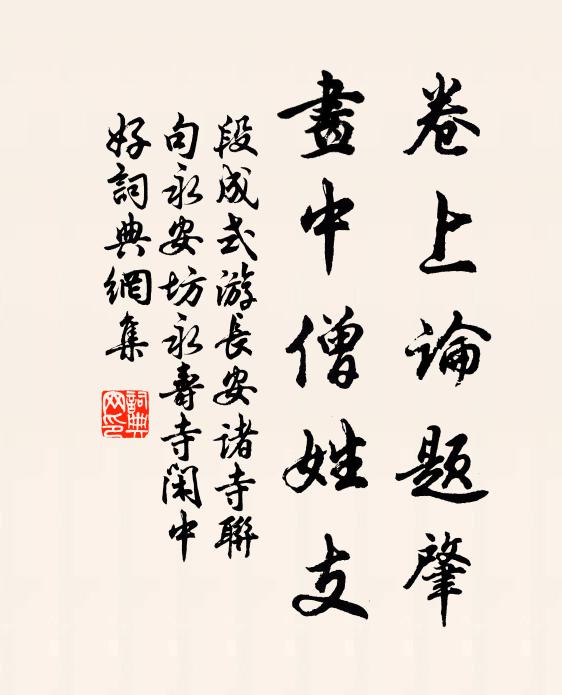 卷上論題肇
畫中僧姓支
段成式游長安诸寺聯
句永安坊永壽寺閑中
好詞典網集
詞典
网印